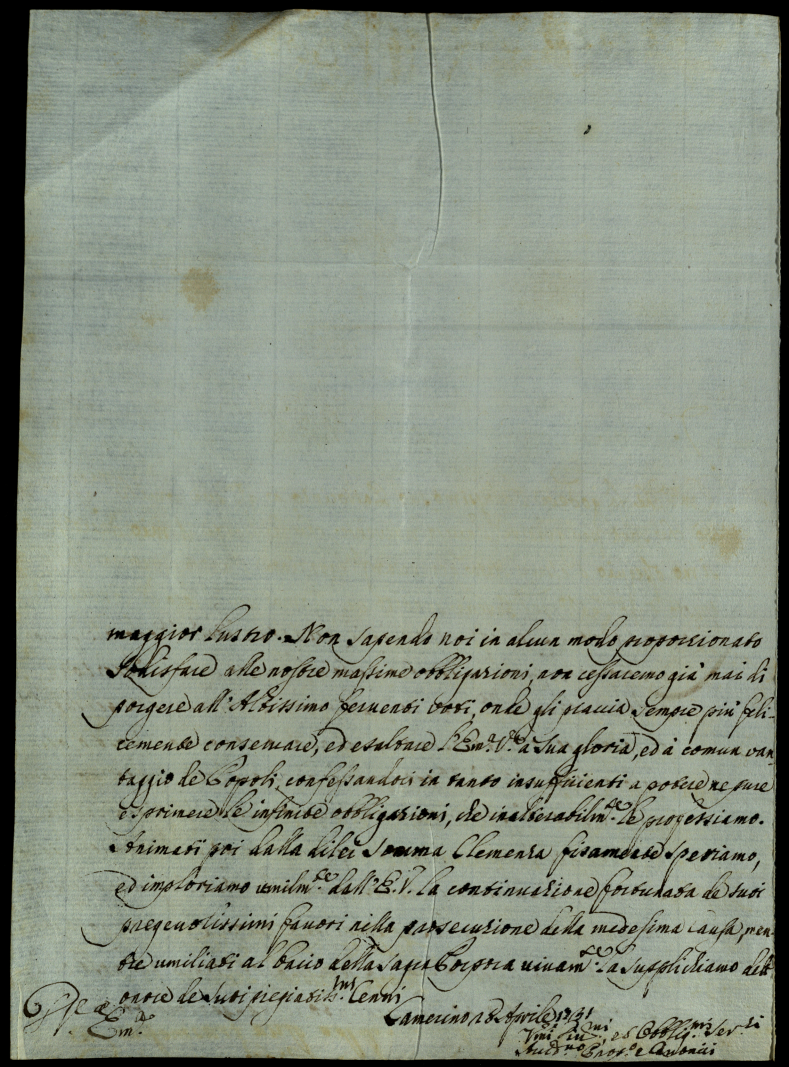 maggior lustro. Non sapendo noi in alcun modo proporzionato
sodisfare alle nostre massime obbligazioni, non cessaremo già mai di
porgere all'Altissimo ferventi voti, onde gli piaccia sempre più feli-
cemente conservare, ed esaltare l'Em.ª V.ª à sua gloria, ed à comun van-
taggio de Popoli, confessandoci in tanto insufficienti a potere ne pure
esprimere le infinite obbligazioni, che inalterabilm.te le professiamo.
Animati poi dalla dilei somma Clemenza fisamente speriamo,
ed imploriamo umilm.te dall'E.V. la continuazione fortunata de suoi
pregevolissimi favori nella prosecuzione della medesima causa, men-
tre umiliati al bacio della sagra Porpora vivam.te la supplichiamo dell'
onore de suoi pregiatis.mi Cenni
Camerino 18 Aprile 1731
Em.ª
Um.mi ed Obblig.mi Ser.ri
e Canonici